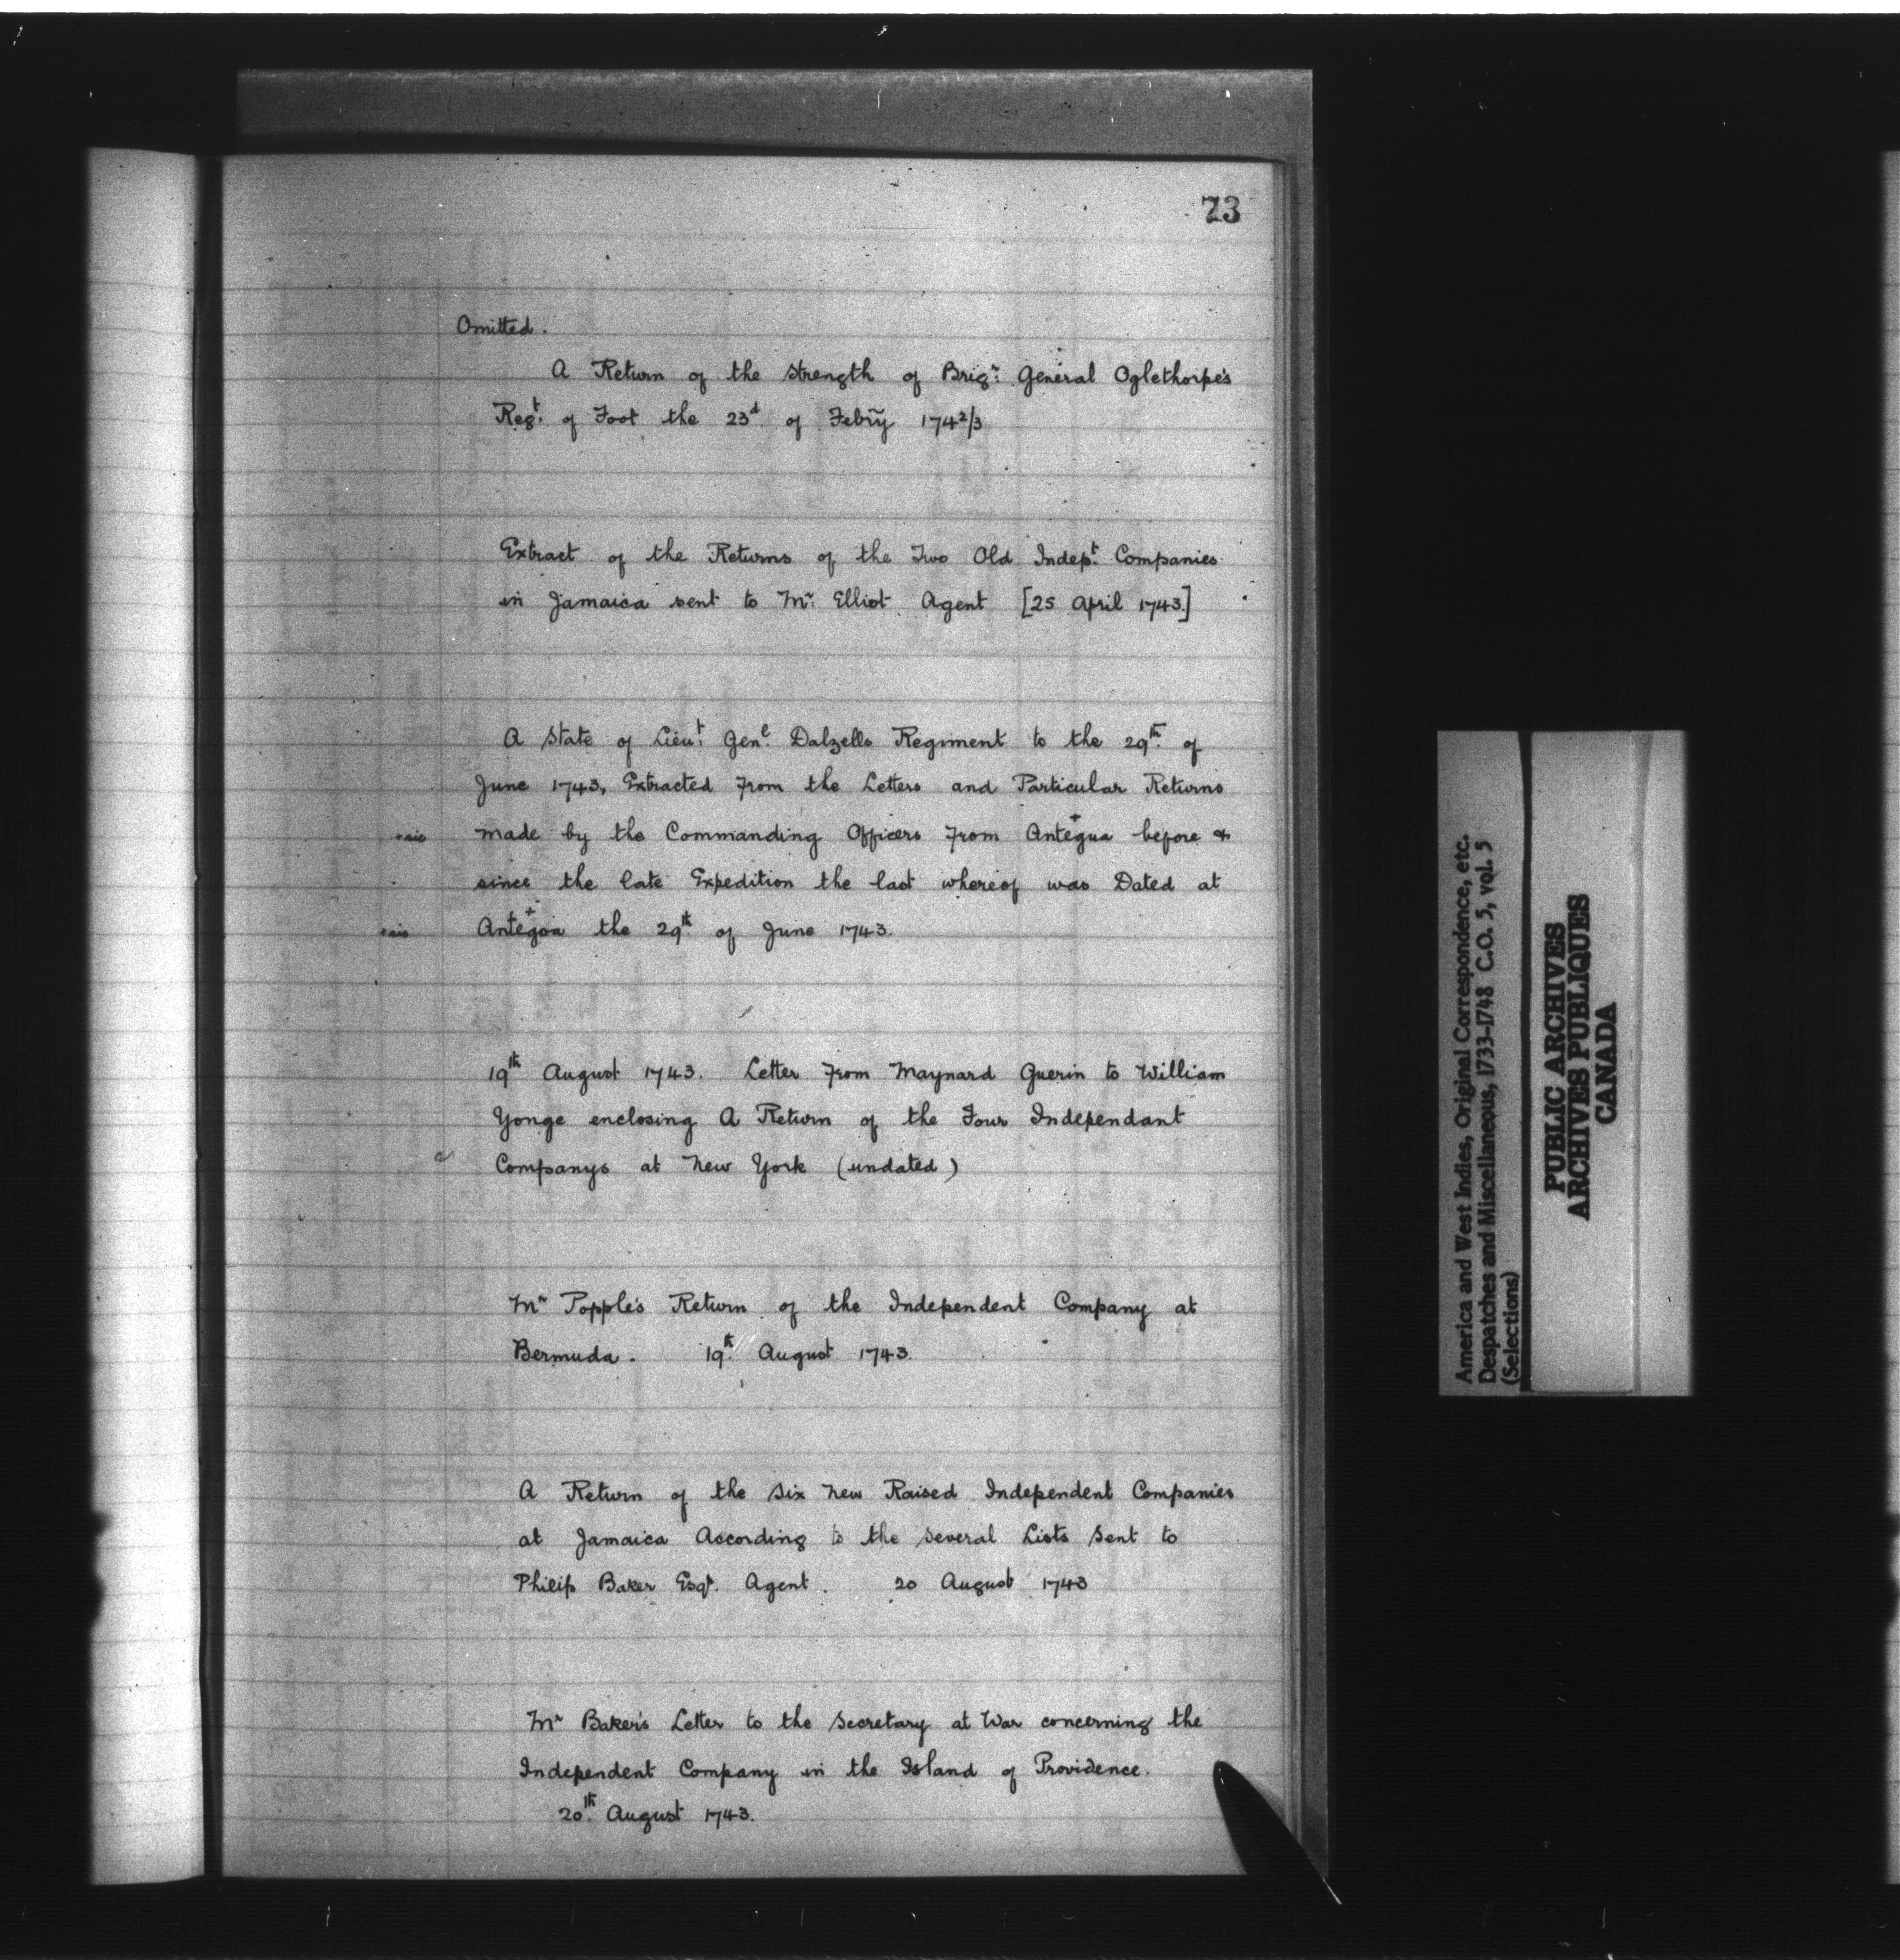 73
Omitted.
A Return of the strength of Brigr: General Oglethorpe's
Regt. of Foot the 23d of Febry 1742/3
Extract of the Returns of the Two Old Indept. Companies
in Jamaica sent to Mr: Elliot Agent [25 April 1743.]
A State of Lieut: Genl. Dalzells Regiment to the 29th. of
June 1743, Extracted from the Letters and Particular Returns
+sic made by the Commanding Officers from Antegua+ before &
since the late Expedition the last whereof was Dated at
+sic Antegoa+ the 29th. of June 1743.
19th August 1743. Letter from Maynard Guerin to William
Yonge enclosing A Return of the Four Independant
Companys at New York (undated)
Mr Popple's Return of the Independent Company at
Bermuda. 19th. August 1743.
A Return of the six new Raised Independent Companies
at Jamaica According to the several Lists sent to
Philip Baker Esqr. Agent. 20 August 1743
Mr Baker's Letter to the Secretary at War concerning the
Independent Company in the Island of Providence.
20th. August 1743.
America and West Indies, Original Correspondence, etc.
Despatches and Miscellaneous, 1733-1748 C.O. 5, vol. 5
(Selections)
PUBLIC ARCHIVES
ARCHIVES PUBLIQUES
CANADA